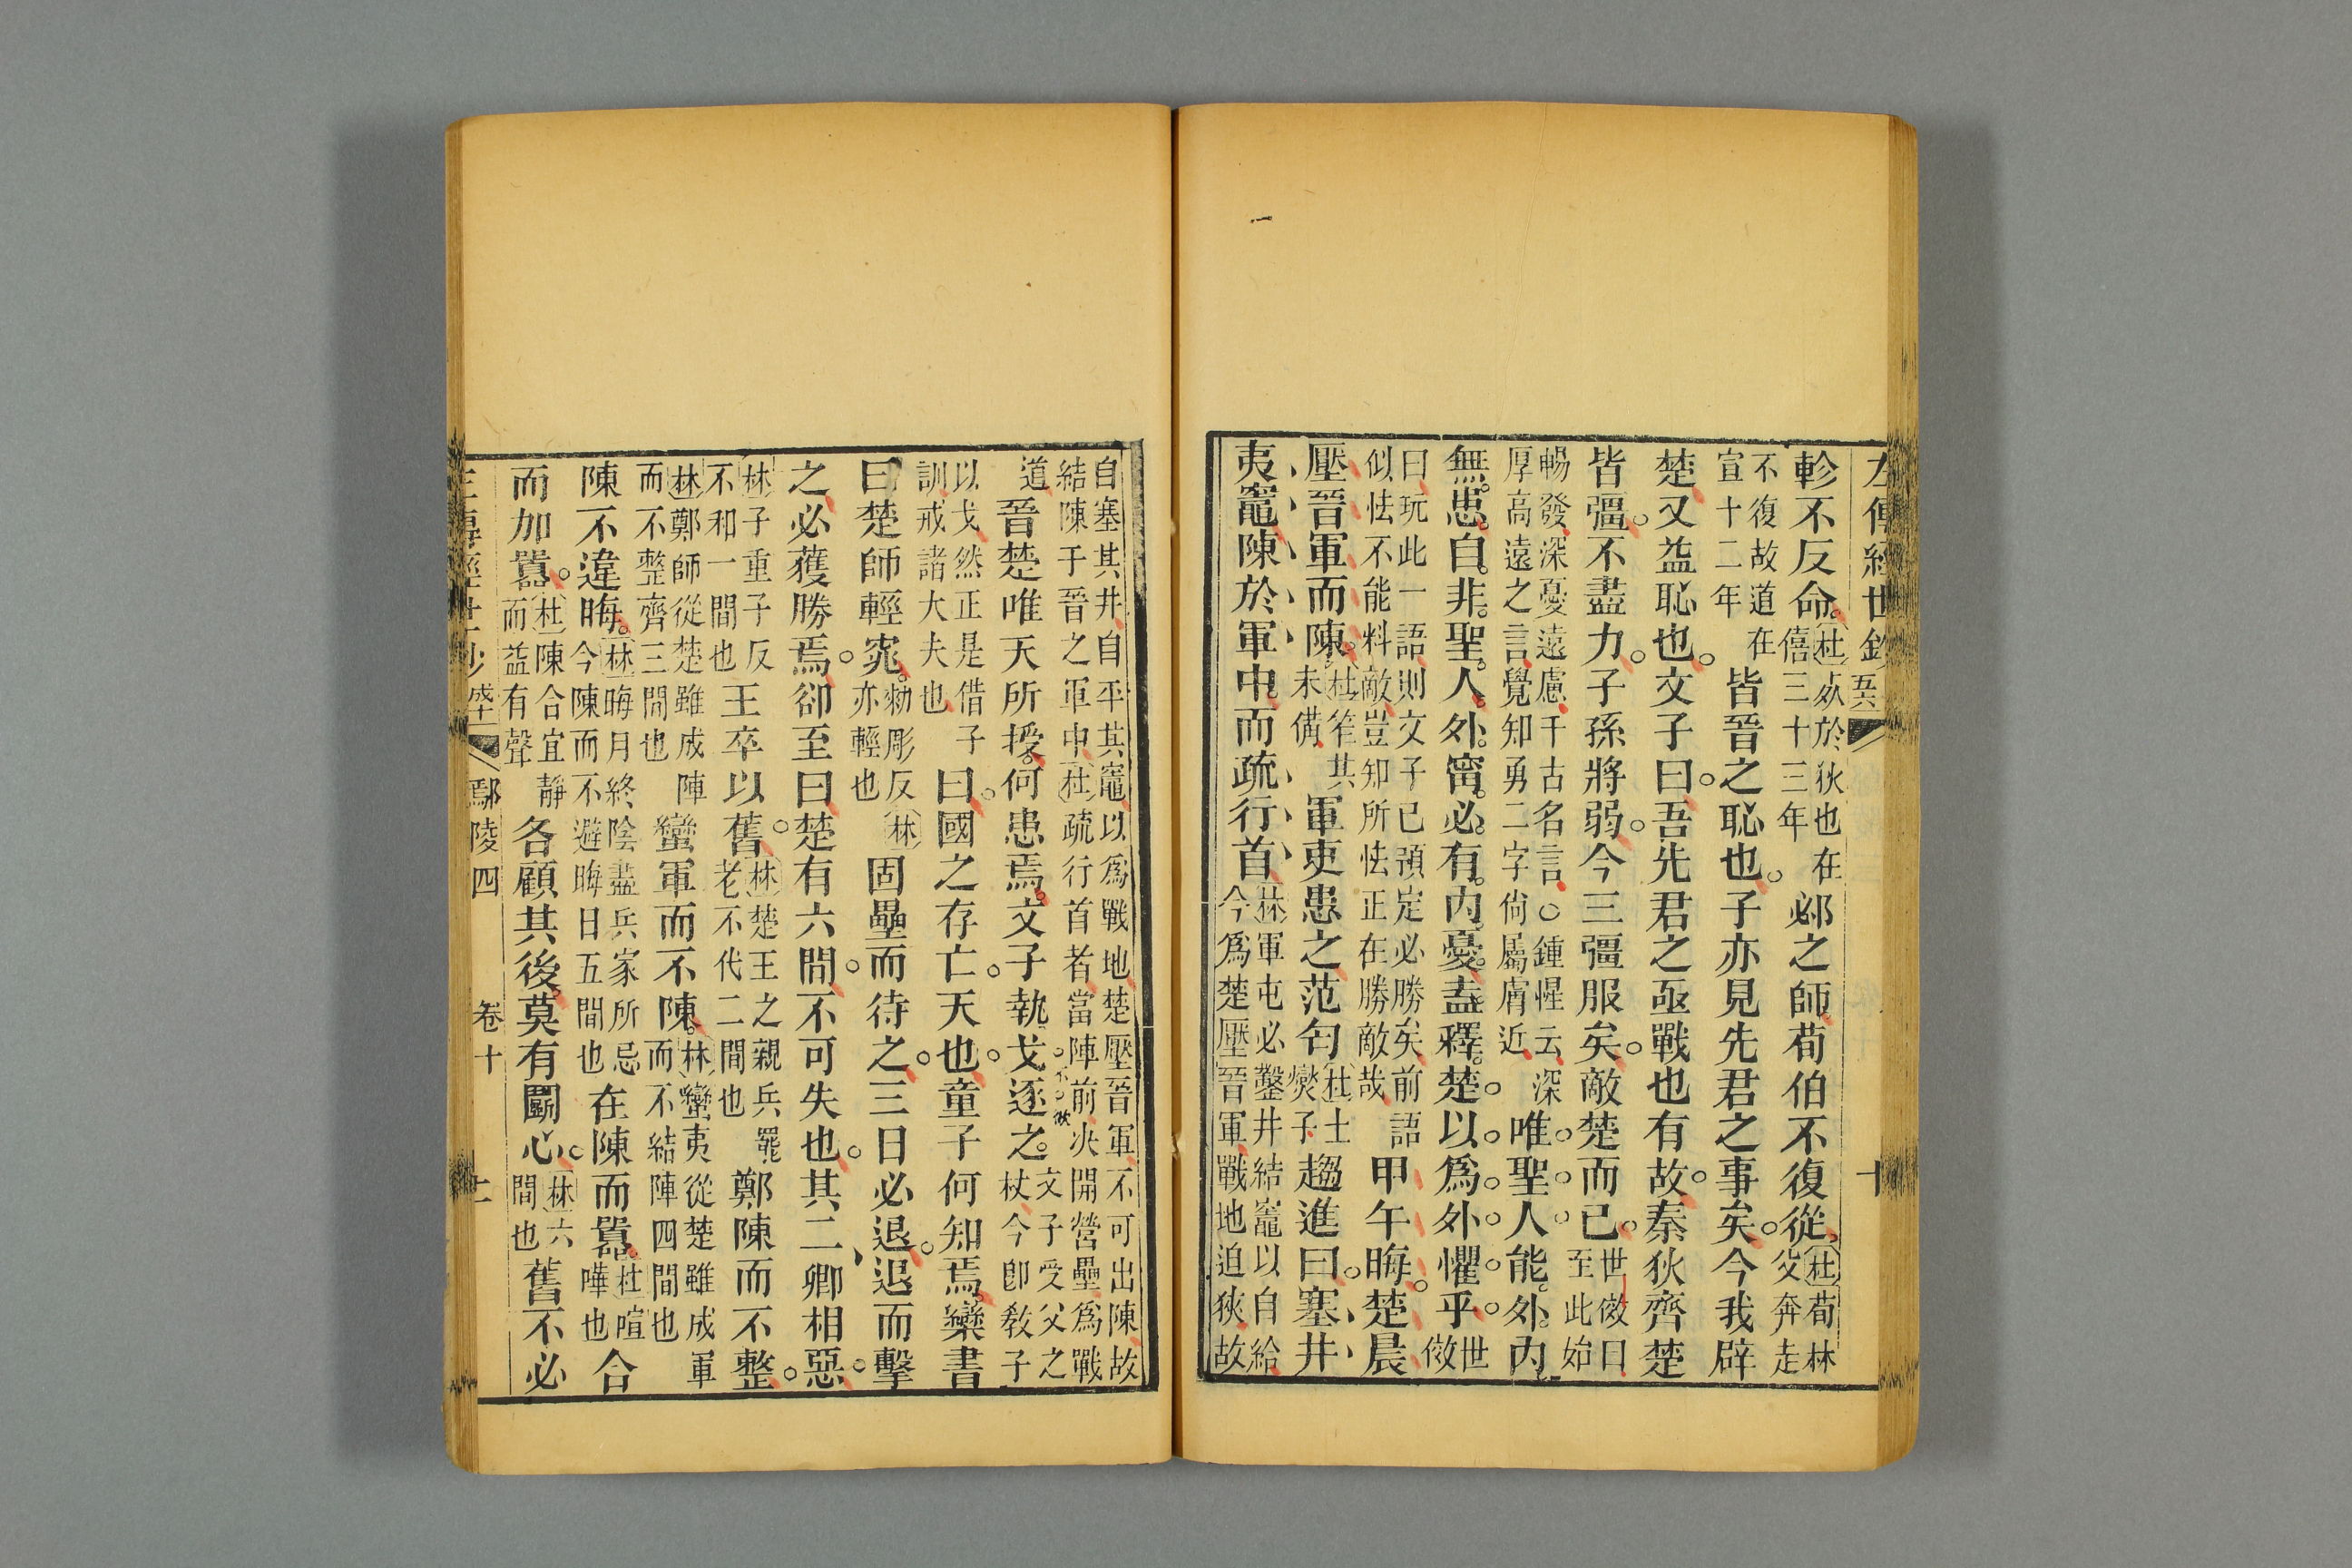 左傳經世鈔
十
軫不反命杜死於狄也在僖三十三年邲之師荀伯不復從杜荀林父奔走
不復故道在宣十二年皆晉之恥也子亦見先君之事矣今我辟
楚又益恥也文子曰吾先君之亟戰也有故秦狄齊楚
皆彊不盡力子孫將弱今三彊服矣敵楚而已世傚曰至此始
暢發深憂遠慮千古名言鍾惺云深厚高遠之言覺知勇二字尙屬膚近唯聖人能外內
無患自非聖人外甯必有內憂盍釋楚以爲外懼乎世傚
曰玩此一語則文子已預定必勝矣前語似怯不能料敵豈知所怯正在勝敵哉甲午晦楚晨
壓晉軍而陳杜笮其未備軍吏患之范匄杜士燮子趨進曰塞井
夷竈陳於軍中而疏行首林軍屯必鑿井結竈以自給今爲楚壓晉軍戰地迫狹故
自塞其井自平其竈以爲戰地楚壓晉軍不可出陳故結陳于晉之軍中杜疏行首者當陣前决開營壘爲戰
道晉楚唯天所授何患焉文子執戈逐之文子受父之杖今卽敎子
以戈然正是借子訓戒諸大夫也曰國之存亡天也童子何知焉欒書
曰楚師輕窕勑彫反林亦輕也固壘而待之三日必退退而擊
之必獲勝焉郤至曰楚有六間不可失也其二卿相惡
林子重子反不和一間也王卒以舊林楚王之親兵罷老不代二間也鄭陳而不整
林鄭師從楚雖成陣而不整齊三間也蠻軍而不陳林蠻夷從楚雖成軍而不結陣四間也
陳不違晦林晦月終陰盡兵家所忌今陳而不避晦日五間也在陳而嚻杜喧嘩也合
而加嚻杜陳合宜靜而益有聲各顧其後莫有鬭心林六間也舊不必
左傳經世鈔
鄢陵四
卷十